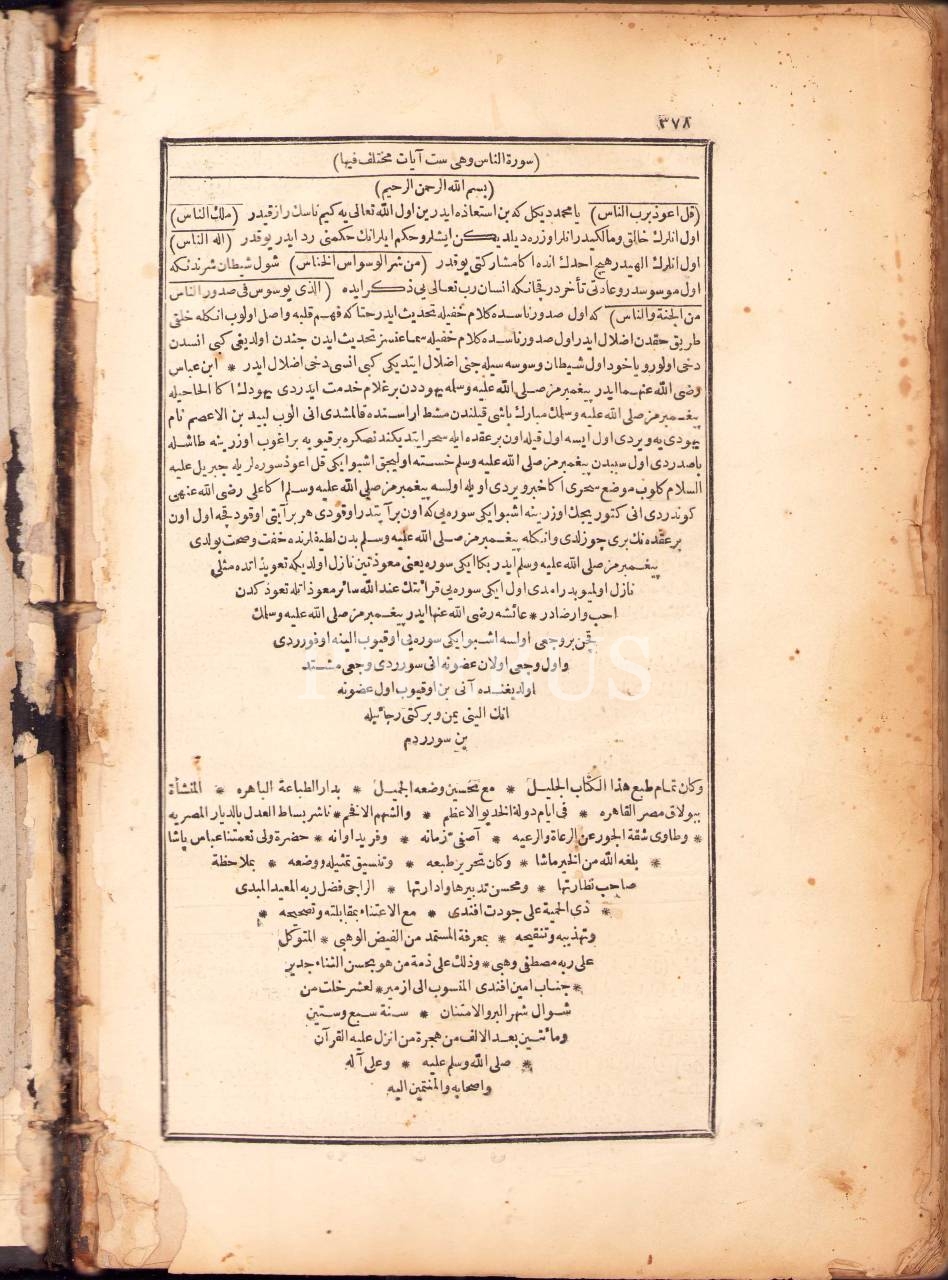 ٣٧٨
(سورة الناس وهى ست آيات مختلف فيها)
(بسم الله الرحمن الرحيم)
(قل اعوذ برب الناس) يا محمد ديكل كه بن استعاذه ايدرين اول الله تعالى يه كيم ناسك رازقيدر (ملك الناس)
اول انلرك خالق ومالكيدر انلر اوزره ديلديكن ايشلر وحكم ايلر انك حكمنى رد ايدر يوقدر (اله الناس)
اول انلرك الهيدر هيچ احدك انده اكا مشاركتى يوقدر (من شر الوسواس الخناس) شول شيطان شرندنكه
اول موسوسدر وعادتى تأخر در قچانكه انسان رب تعالى يى ذكر ايده (الذى يوسوس فى صدور الناس
من الجنة والناس) كه اول صدور ناسده كلام خفيله تحديث ايدر حتا كه فهم قلبه واصل اولوب انكله خلقى
طريق حقدن اضلال ايدر اول صدور ناسده كلام خفيله سماعسز تحديث ايدن جندن اولديغى كبى انسدن
دخى اولور ويا خود اول شيطان وسوسه سيله جنى اضلال ايتديكى كبى انسى دخى اضلال ايدر * ابن عباس
رضى الله عنهما ايدر پيغمبرمز صلى الله عليه وسلمه يهوددن بر غلام خدمت ايدردى يهودلك اكا الحاحيله
پيغمبرمز صلى الله عليه وسلمك مبارك باشى قيلندن مشط اراسنده قالمشدى انى الوب لبيد بن الاعصم نام
يهودى يه ويردى اول ايسه اول قيله اون بر عقده ايله سحر ايتديكندنصكره بر قيويه براغوب اوزرينه طاشله
باصدردى اول سببدن پيغمبرمز صلى الله عليه وسلم خسته اوليجق اشبو ايكى قل اعوذ سوره لريله جبريل عليه
السلام كلوب موضع سحرى اكا خبر ويردى اويله اولسه پيغمبرمز صلى الله عليه وسلم اكا على رضى الله عنهى
كوندردى انى كتوريجك اوزرينه اشبو ايكى سوره يى كه اون بر آيتدر اوقودى هر بر آيتى اوقودقجه اول اون
بر عقده نك برى چوزلدى وانكله پيغمبرمز صلى الله عليه وسلم بدن لطيفلرنده خفت وصحت بولدى
پيغمبرمز صلى الله عليه وسلم ايدر بكا ايكى سوره يعنى معوذتين نازل اولديكه تعويذاتده مثلى
نازل اولميوبدر امدى اول ايكى سوره يى قرائتك عند الله سائر معوذاتله تعوذ كدن
احب وارضادر * عائشه رضى الله عنها ايدر پيغمبرمز صلى الله عليه وسلمك
قچن بر وجعى اولسه اشبو ايكى سوره يى اوقيوب الينه اوفورردى
واول وجعى اولان عضونه انى سوردى وجعى مشتد
اولديغنده آنى بن اوقيوب اول عضونه
انك الينى يمن وبركتى رجائيله
بن سورردم
وكان تمام طبع هذا الكتاب الجليل * مع تحسين وضعه الجميل * بدار الطباعة الباهره * المنشأة
ببولاق مصر القاهره * فى ايام دولة الخديو الاعظم * والشهم الافخم * ناشر بساط العدل بالديار المصريه
* وطاوى شقة الجور عن الرعاة والرعيه * آصفى زمانه * وفريد اوانه * حضرة ولى نعمتنا عباس پاشا
* بلغه الله من الخير ماشا * وكان تحرير طبعه * وتنسيق تمثيله ووضعه * بملاحظة
صاحب نظارتها * ومحسن تدبيرها وادارتها * الراجى فضل ربه المعيد المبدى
* ذى الحمية على جودت افندى * مع الاعتناء بمقابلته وتصحيحه *
وتهذيبه وتنقيحه * بمعرفة المستمد من الفيض الوهبى * المتوكل
على ربه مصطفى وهبى * وذلك على ذمة من هو بحسن الثناء جدير
* جناب امين افندى المنسوب الى ازمير * لعشر خلت من
شوال شهر البر والامتنان * سنة سبع وستين
ومائتين بعد الالف من هجرة من انزل عليه القرآن
* صلى الله وسلم عليه * وعلى آله
واصحابه والمنتمين اليه